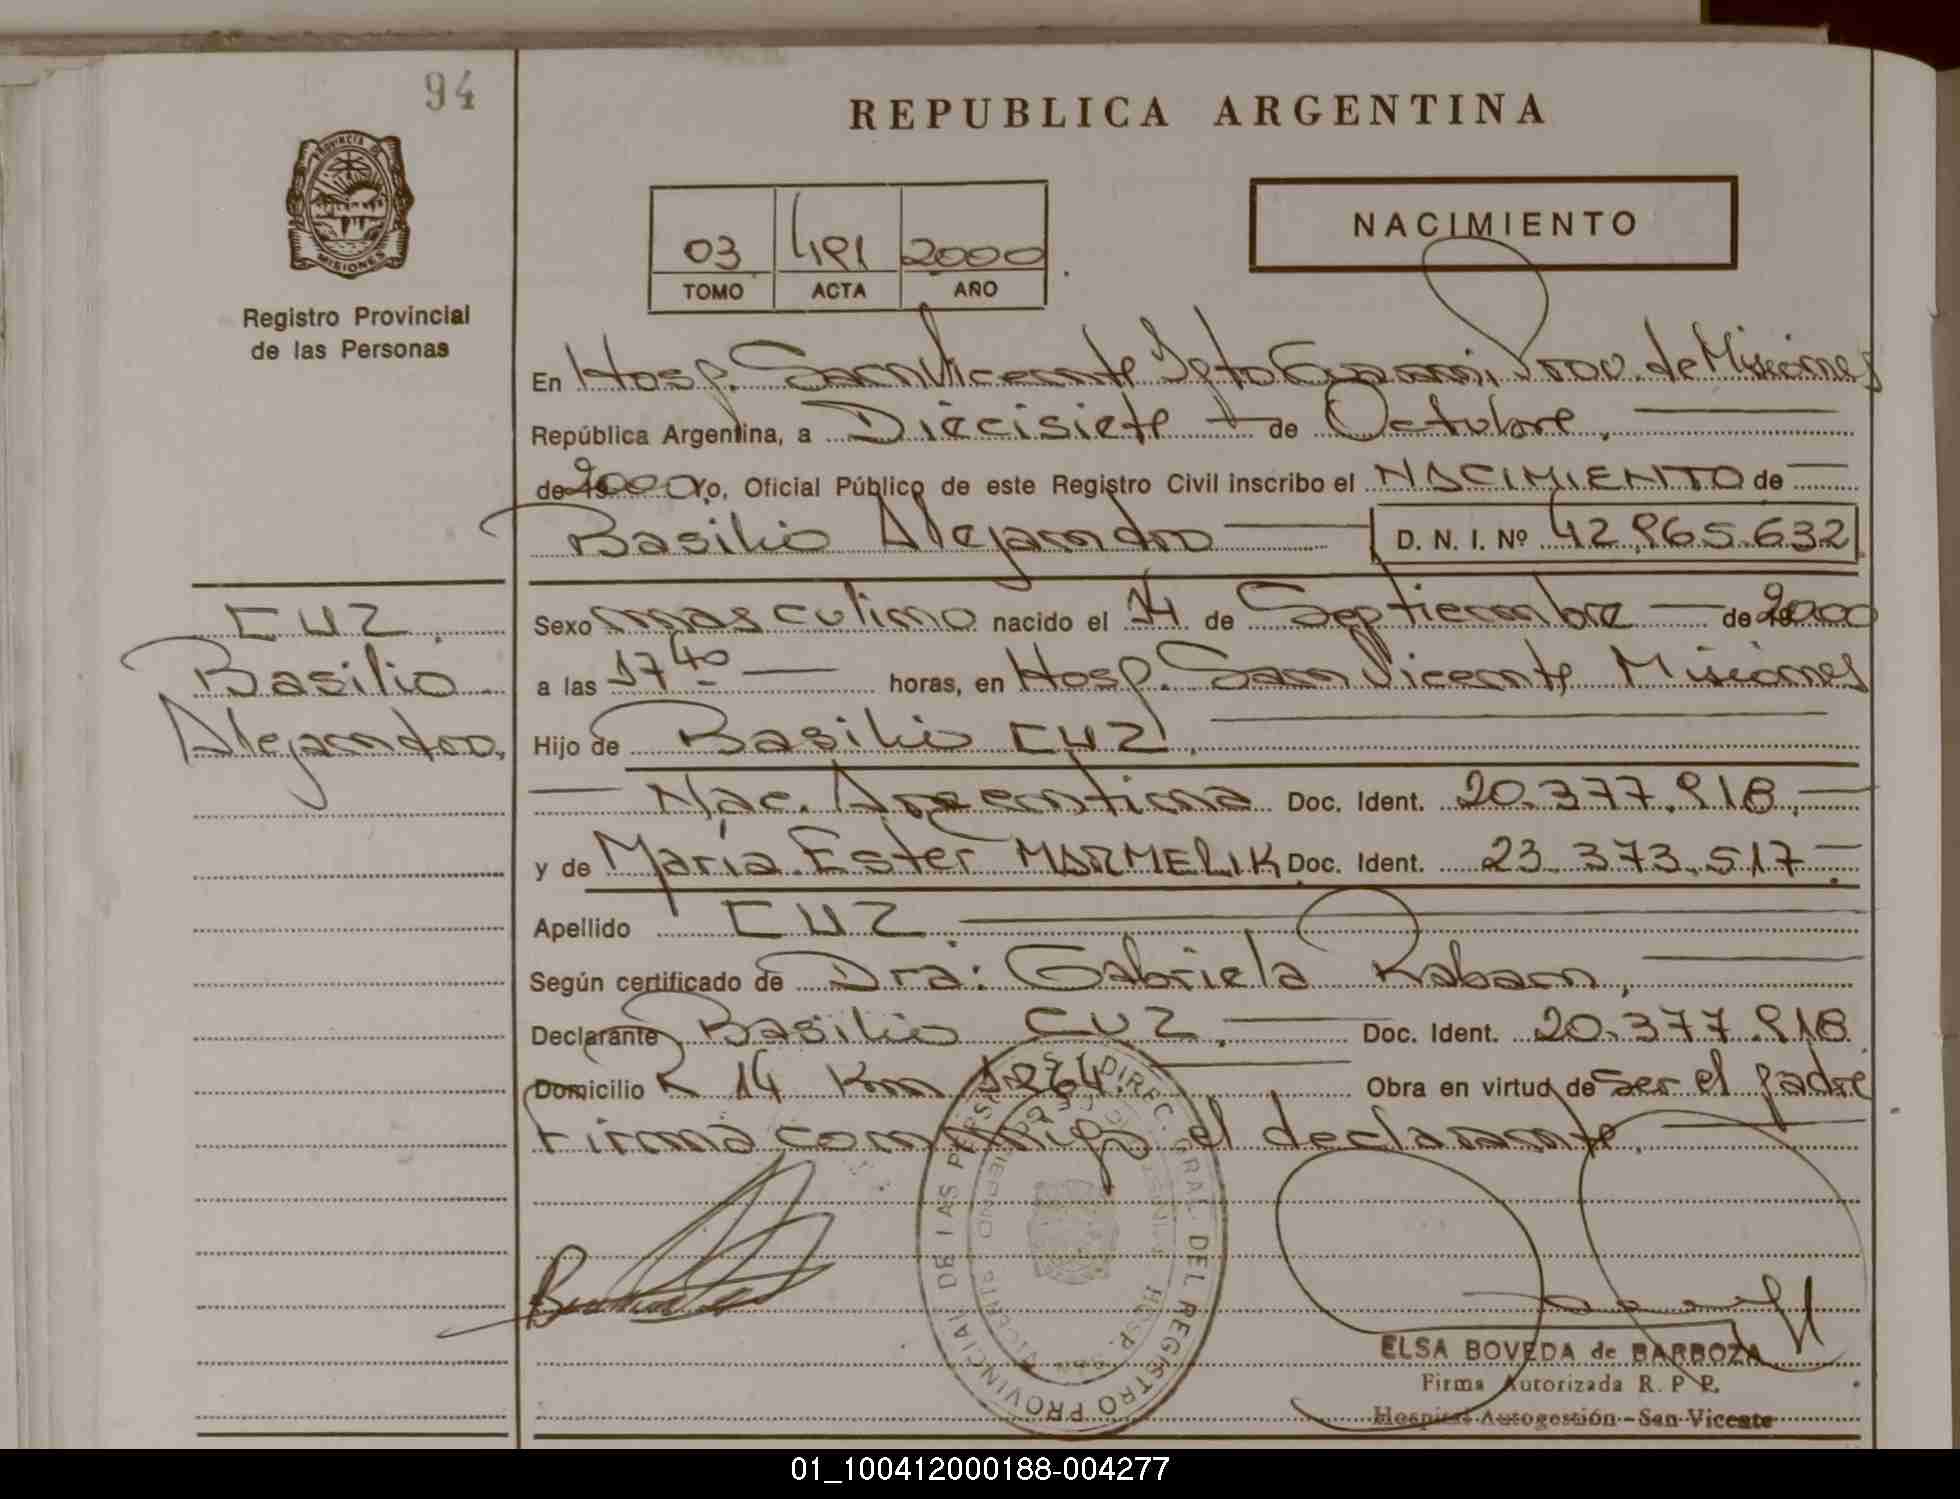 94
REPUBLICA ARGENTINA
PROVINCIA DE
MISIONES
Registro Provincial
de las Personas
NACIMIENTO
03 491 2000
TOMO ACTA AÑO
En Hosp. San Vicente Dpto Guaraní, Prov. de Misiones
República Argentina, a Diecisiete de Octubre,
de 2000 Yo, Oficial Público de este Registro Civil inscribo el NACIMIENTO de
Basilio Alejandro D. N. I. Nº 42.965.632
CUZ
Basilio
Alejandro.
Sexo masculino nacido el 14 de Septiembre de 2000
a las 17 40 horas, en Hosp. San Vicente Misiones
Hijo de Basilio CUZ,
Nac. Argentina Doc. Ident. 20.377.918,
y de María Ester MARMELIK Doc. Ident. 23.373.517
Apellido CUZ
Según certificado de Dra: Gabriela Raban,
Declarante Basilio CUZ, Doc. Ident. 20.377.918
Domicilio R 14 Km 1264. Obra en virtud de ser el padre
Firma conmigo el declarante.
DIREC. GRAL. DEL REGISTRO PROVINCIAL DE LAS PERS
HOSP. SAN VICENTE
ELSA BOVEDA de BARBOZA
Firma Autorizada R. P P.
Hospital Autogestión - San Vicente
01_100412000188-004277